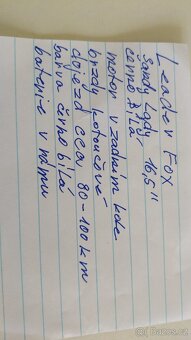 Leader Fox
Sandy Lady 16,5"
černo bílá
motor v zadním kole
brzdy kotoučové
dojezd cca, 80-100 km
barva černo bílá
baterie v rámu
Bazoš.cz